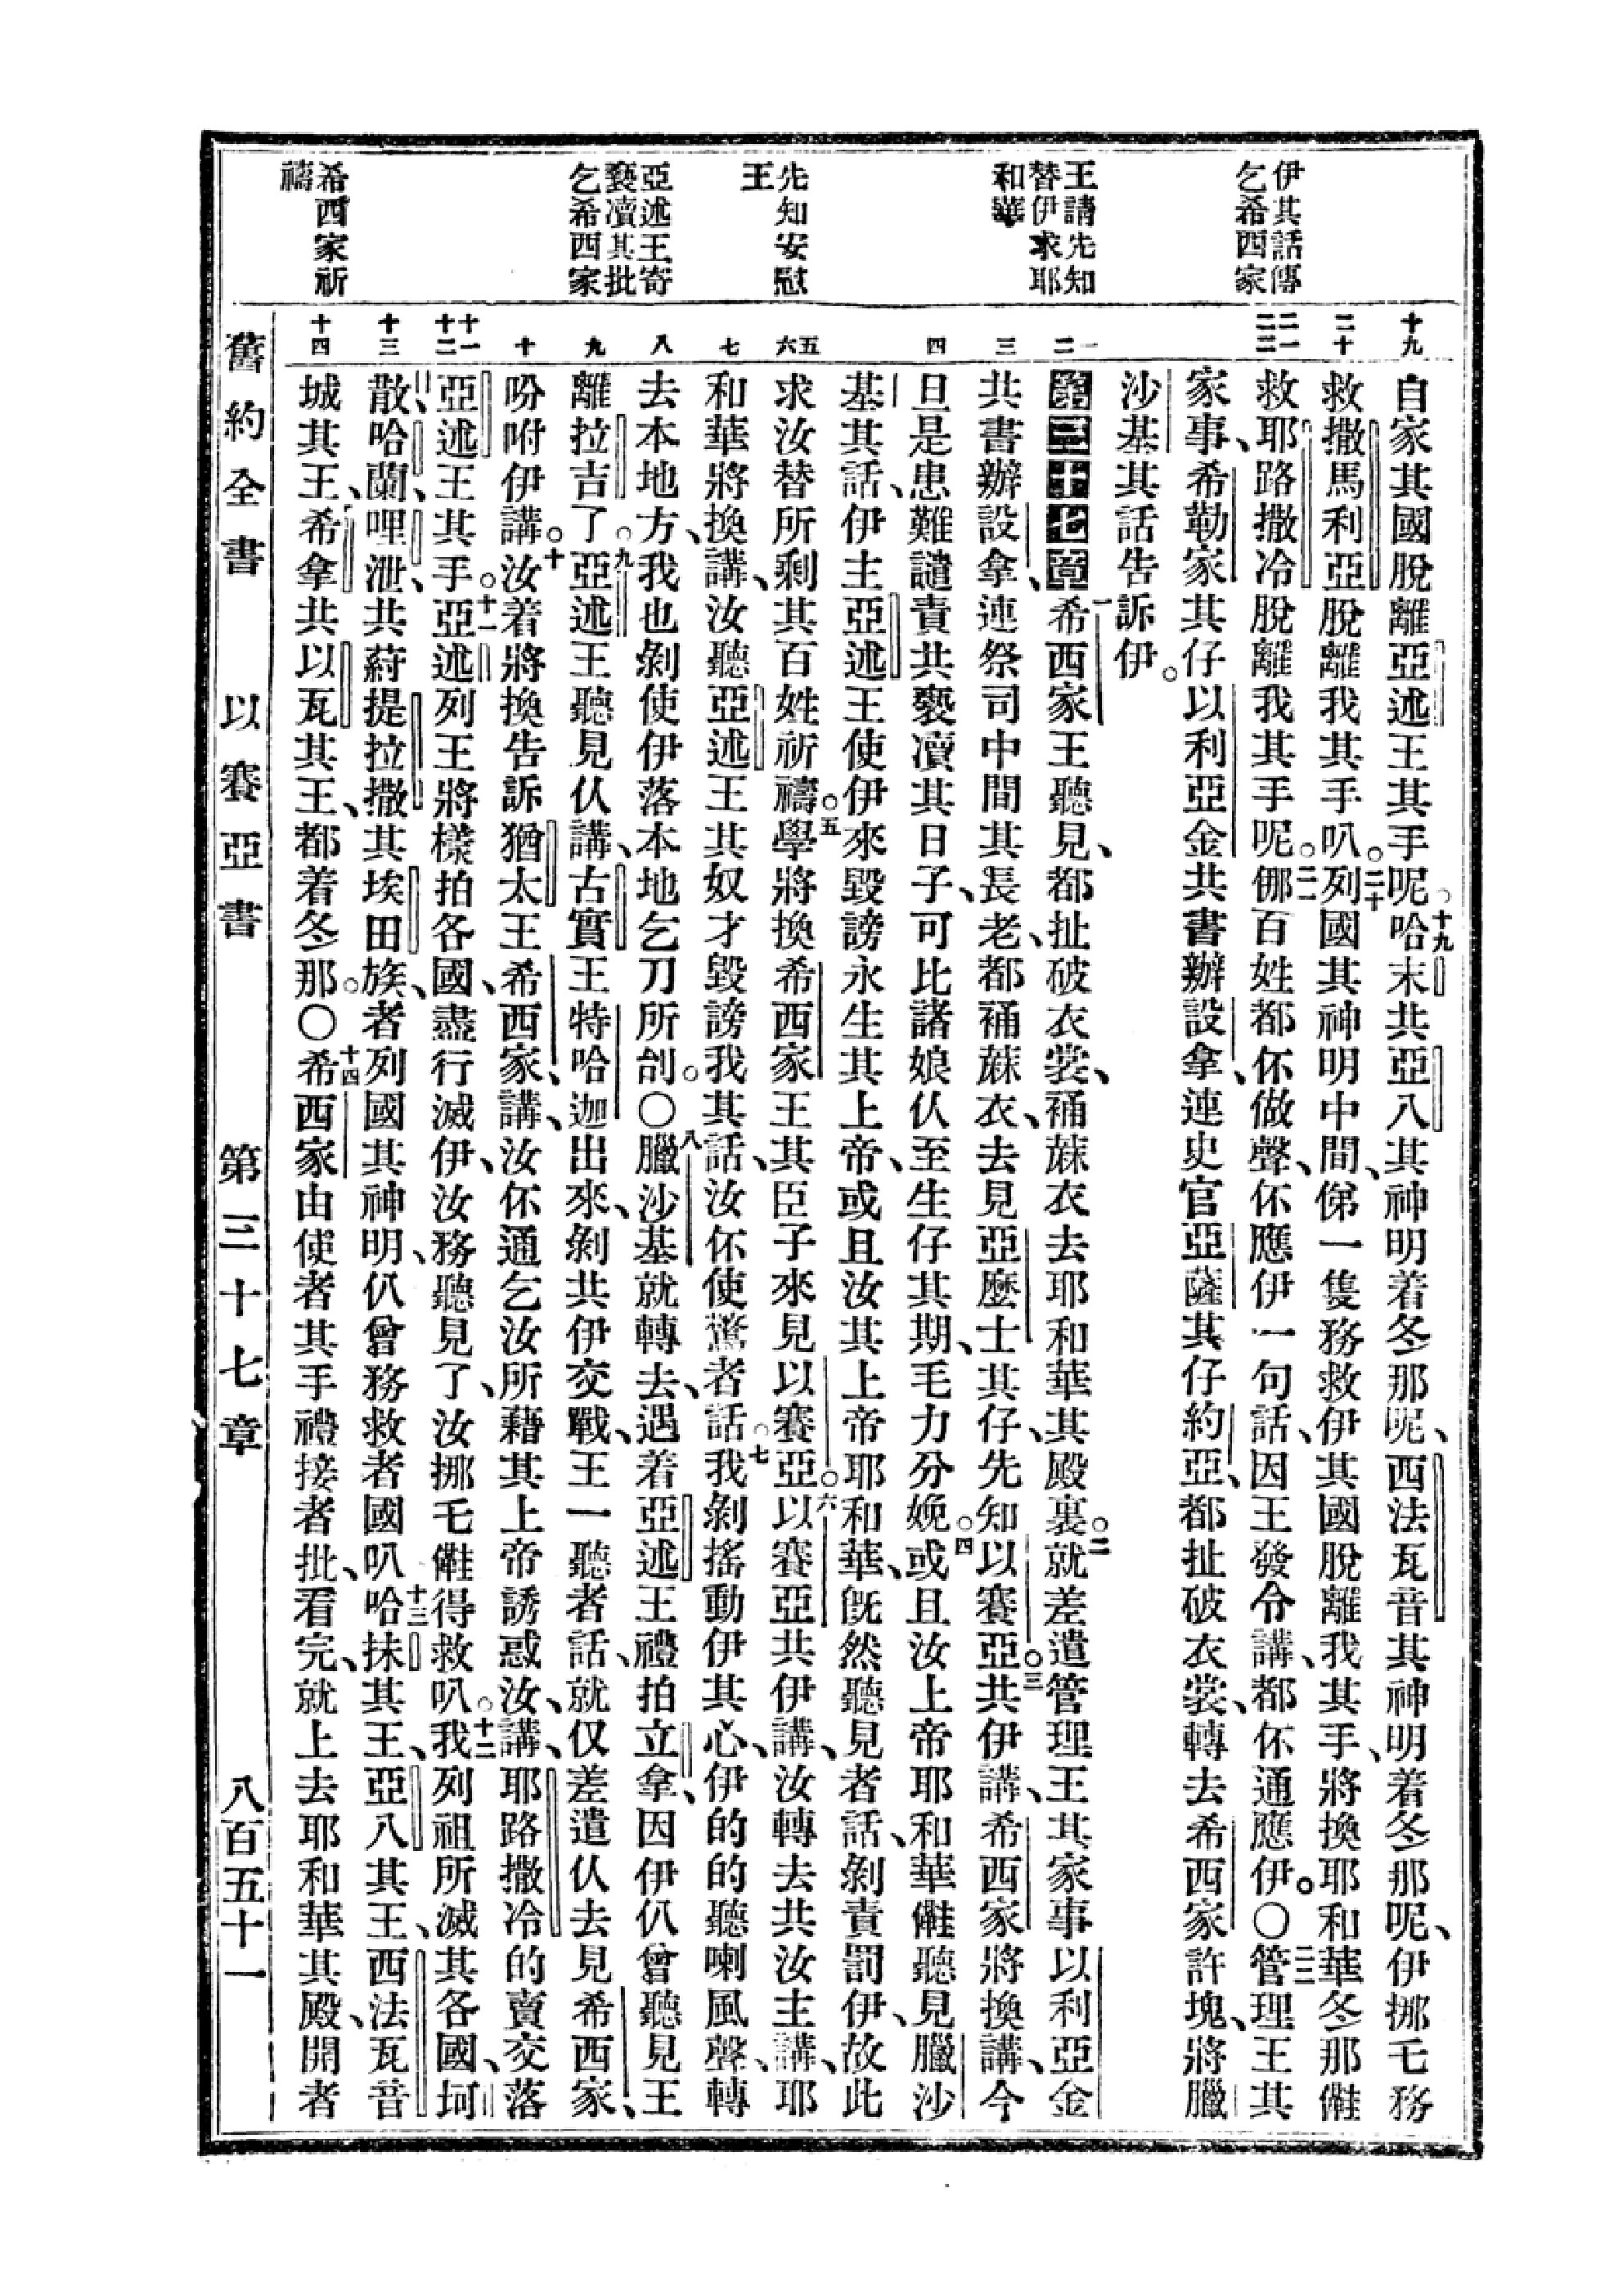 伊其話傳
乞希西家
王請先知
替伊求耶
和華
先知安慰
王
亞述王寄
褻瀆其批
乞希西家
希西家祈
禱
十九
二十
二一
二二
一
二
三
四
五
六
七
八
九
十
十一
十二
十三
十四
自家其國脫離亞述王其手呢。十九哈末共亞八其神明着冬那呢、西法瓦音其神明着冬那呢、伊挪乇務
救撒馬利亞脫離我其手叭。二十列國其神明中間、俤一隻務救伊其國脫離我其手、將換耶和華冬那㒰
救耶路撒冷脫離我其手呢。二一㑚百姓都伓做聲、伓應伊一句話、因王發令講、都伓通應伊。〇二二管理王其
家事、希勒家其仔以利亞金共書辦設拿、連史官亞薩其仔約亞、都扯破衣裳、轉去希西家許塊、將臘
沙基其話告訴伊。
第三十七章一希西家王聽見、都扯破衣裳、䘄蔴衣去耶和華其殿裏。二就差遣管理王其家事以利亞金
共書辦設拿、連祭司中間其長老、都䘄蔴衣、去見亞麼士其仔、先知以賽亞。三共伊講、希西家將換講、今
旦是患難譴責共褻瀆其日子、可比諸娘仈至生仔其期、毛力分娩。四或且汝上帝耶和華㒰聽見臘沙
基其話、伊主亞述王使伊來毀謗永生其上帝、或且汝其上帝耶和華、旣然聽見者話、剝責罰伊、故此
求汝替所剩其百姓祈禱。五學將換希西家王其臣子來見以賽亞。六以賽亞共伊講、汝轉去共汝主講、耶
和華將換講、汝聽亞述王其奴才毀謗我其話、汝伓使驚者話。七我剝搖動伊其心、伊的的聽喇風聲、轉
去本地方、我也剝使伊落本地乞刀所刣。〇八臘沙基就轉去、遇着亞述王禮拍立拿、因伊仈曾聽見王
離拉吉了。九亞述王聽見仈講、古實王特哈迦出來、剝共伊交戰、王一聽者話、就仅差遣仈去見希西家、
吩咐伊講。十汝着將換告訴猶太王希西家、講、汝伓通乞汝所藉其上帝誘惑汝、講、耶路撒冷的賣交落
亞述王其手。十一亞述列王將樣拍各國、盡行滅伊、汝務聽見了、汝挪乇㒰得救叭。十二我列祖所滅其各國、坷
散、哈蘭、哩泄、共葤提拉撒其埃田族、者列國其神明、仈曾務救者國叭。十三哈抹其王、亞八其王、西法瓦音
城其王、希拿共以瓦其王、都着冬那。〇十四希西家由使者其手禮接者批、看完、就上去耶和華其殿、開者
舊約全書　以賽亞書　第三十七章　八百五十一